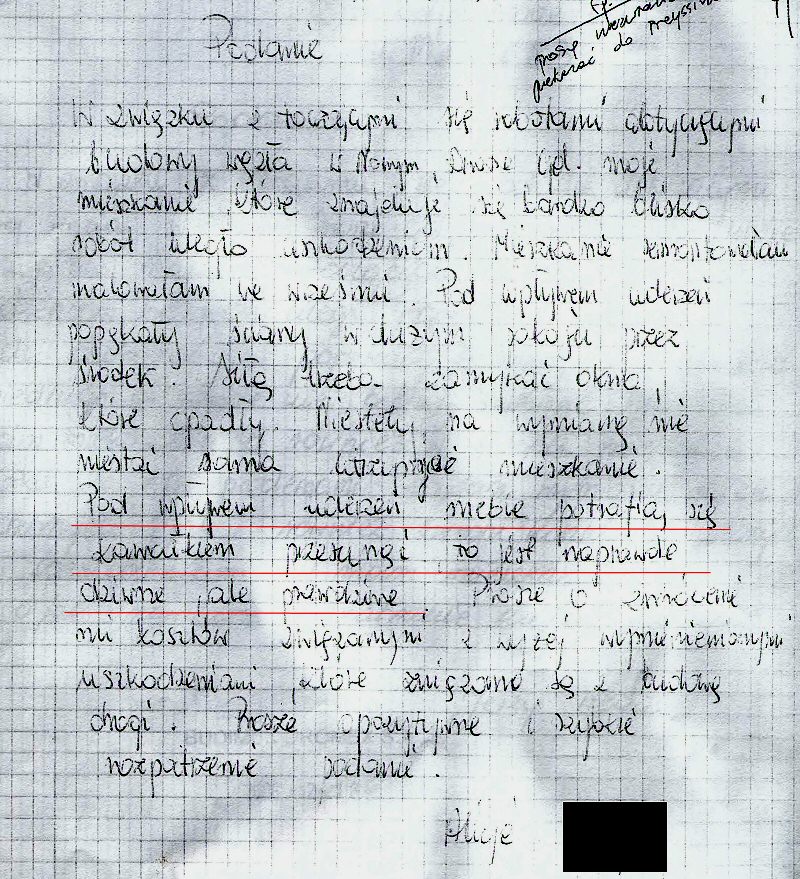 Proszę
przekazać do
Podanie
W związku z toczącymi się robotami dotyczącymi
budowy węzła w Nowym Dworze Gd. moje
mieszkanie, które znajduje się bardzo blisko
robót uległo uszkodzeniom. Mieszkanie remontowałam
malowałam we wrześniu. Pod wpływem uderzeń
popękały ściany w dużym pokoju przez
środek. Siłą trzeba zamykać okna,
które opadły. Niestety, na wymianę nie
stać sama mieszkanie.
Pod wpływem uderzeń meble potrafią się
kawałkiem przesunąć to jest naprawdę
dziwne, ale prawdziwe. Proszę o zwrócenie
mi kosztów związanymi z wyżej wymienionymi
uszkodzeniami, które związane są z budową
drogi. Proszę o pozytywne i szybkie
rozpatrzenie podanie.
Alicja